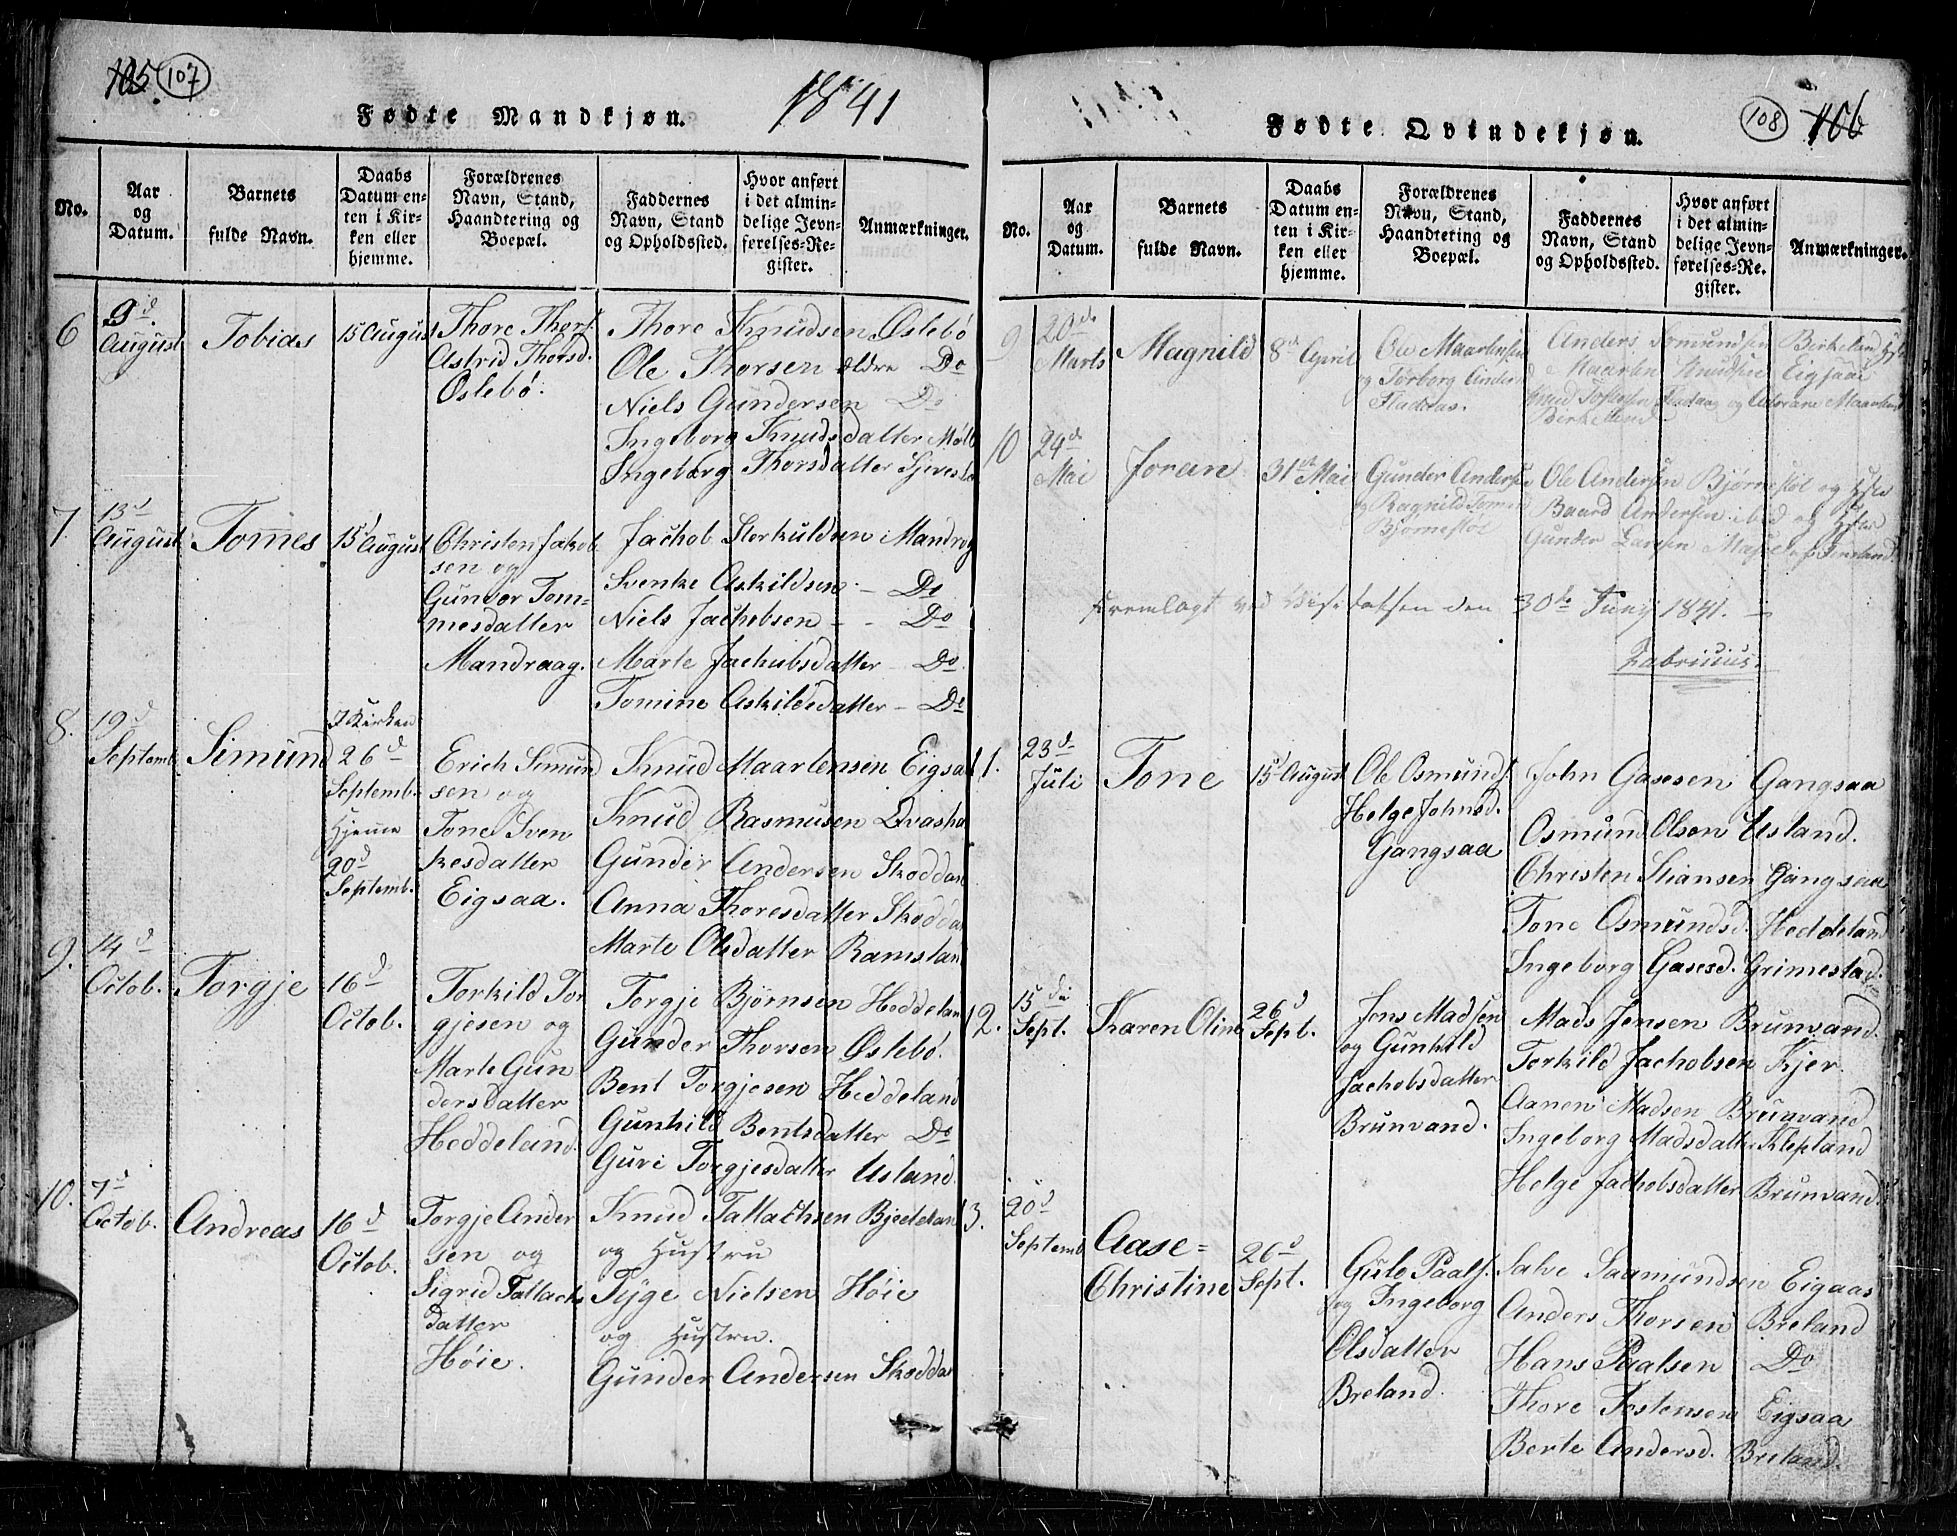 105. 107
Fødte Mandkjøn. 1841
No.
Aar og Datum.
Barnets fulde Navn.
Daabs Datum enten i Kirken eller hjemme.
Forældrenes Navn, Stand, Haandtering og Boepæl.
Faddernes Navn, Stand og Opholdssted.
Hvor anført i det almindelige Jevnførelses-Register.
Anmærkninger.
6 9d August Tobias 15 August
Thore Thors.
Astrid Thorsd.
Oslebö.
Thore Knudsen Oslebö
Ole Thorsen ældre Do
Niels Gundersen Do
Ingeborg Knudsdatter
Ingeborg Thorsdatter
7. 13d August Tomes 15 August
Christen Jakob
sen og
Gunvor Tom=
mesdatter
Mandraag.
Jachob
Svenke Askildsen - Do
Niels Jachobsen - - Do
Marte Jachobsdatter - Do
Tomine Askildsdatter - Do
8. 19d Septemb. Simund
I Kirken
26d
Septemb.
Hjemme
20d
Septemb.
Erich Simund
sen og
Tone Sven
kesdatter
Eigsaa.
Knud Maartensen Eigsaa
Knud Rasmusen
Gunder Andersen
Anna Thoresdatter
Marte Olsdatter Ramslan
9. 14d Octob. Torgje 16d Octob.
Torkild Tor
gjesen og
Marte Gun
dersdatter
Heddeland.
Torgje Bjørnsen Heddelan
Gunder Thorsen Oslebö.
Bent Torgjesen Heddeland
Gunhild Bentsdatter Do
Guri Torgjesdatter Usland.
10. 7d Octob. Andreas 16d Octob.
Torgje Ander
sen og
Sigrid Tallachs
datter
Höie.
Knud Tallachsen
og Hustru
Tyge Nielsen Höie
og Hustru.
Gunder Andersen
108 106
Fødte Qvindekjøn.
No.
Aar og Datum.
Barnets fulde Navn.
Daabs Datum enten i Kirken eller hjemme.
Forældrenes Navn, Stand, Haandtering og Boepæl.
Faddernes Navn, Stand og Opholdssted.
Hvor anført i det almindelige Jevnførelses-Register.
Anmærkninger.
9 20de Marts Magnild 8de April
Ole Maartensen
og Torborg Anders
Anders Birkeland
Maarten Knudsen Eigsaae
Birkeland
10 24de Mai Joran 31te Mai
Gunder Andersen
og Ragnild
Bjørnestöl
Ole Andersen Bjørnestöl og
Baard Andersen ibid og
Gunder Larsen
Fremlagt ved Visitatsen den 30te Juny 1841.
Fabricius.
11. 23d Juli Tone 15 August
Ole Osmunds.
Helge Johnsd.
Gangsaa
John Gasesen Gangsaa
Osmund Olsen Usland.
Christen Stiansen Gangsaa
Tone Osmundsd. Heddeland
Ingeborg Gasesd. Grimestad.
12. 15de Sept. Karen Oline 26d Sept.
Jens Madsen
og Gunhild
Jachobsdatter
Brunvand.
Mads Jensen Brunvand.
Torkild Jachobsen Kjer.
Aanen Madsen Brunvand
Ingeborg Madsdatter Klepland
Helge Jachobsdatter Brunvand.
13. 20d Septemb. Aase=
Christine 26d Sept.
Gule Paals.
og Ingeborg
Olsdatter
Breland.
Salve Saamundsen Eigaas
Anders Thorsen Breland
Hans Paalsen Do
Thore Tostensen Eigsaa
Berte Andersd. Breland.